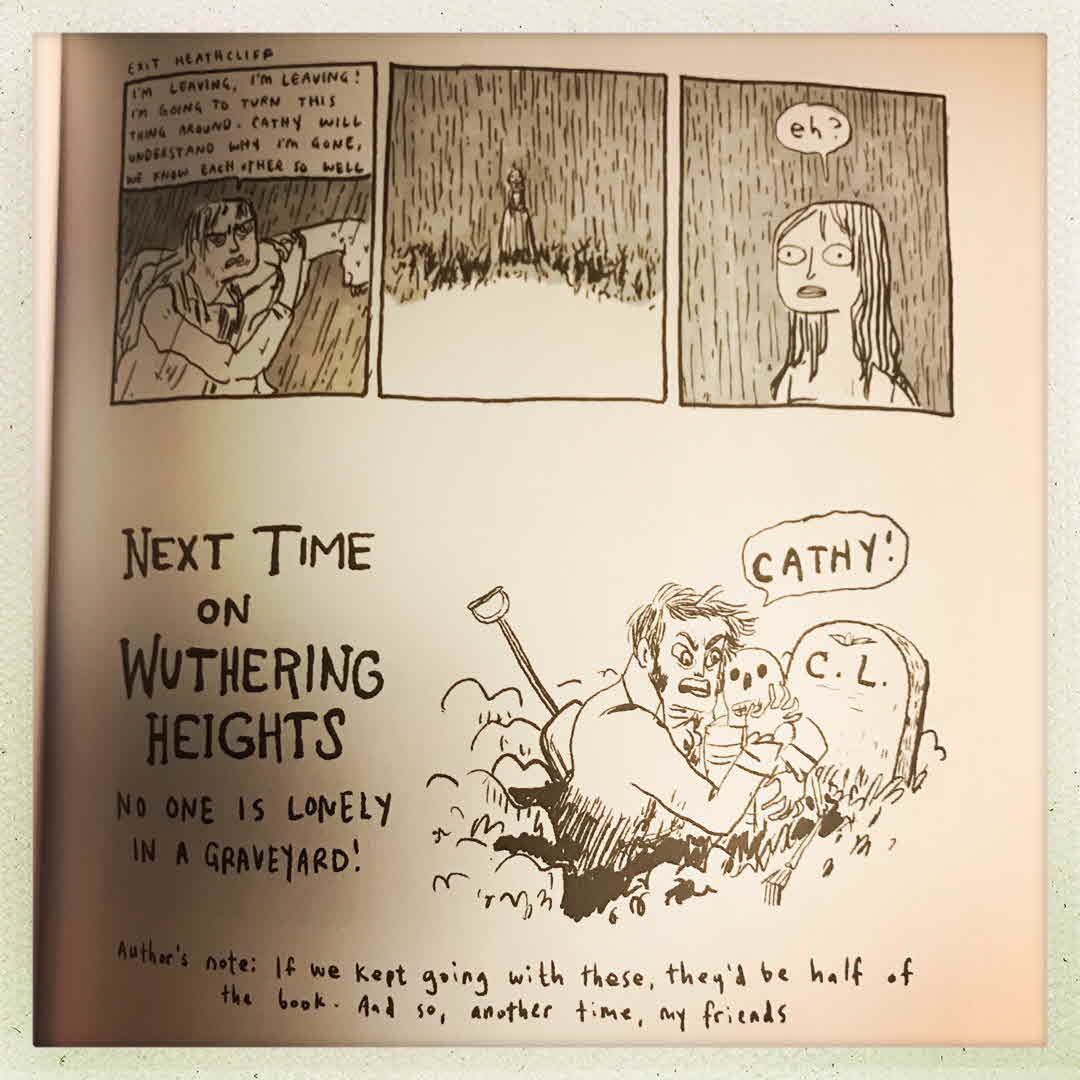 EXIT HEATHCLIFF
I'M LEAVING, I'M LEAVING!
I'M GOING TO TURN THIS
THING AROUND. CATHY WILL
UNDERSTAND WHY I'M GONE,
WE KNOW EACH OTHER SO WELL
eh?
NEXT TIME
ON
WUTHERING
HEIGHTS
NO ONE IS LONELY
IN A GRAVEYARD!
CATHY!
C. L.
Author's note: If we kept going with these, they'd be half of
the book. And so, another time, my friends